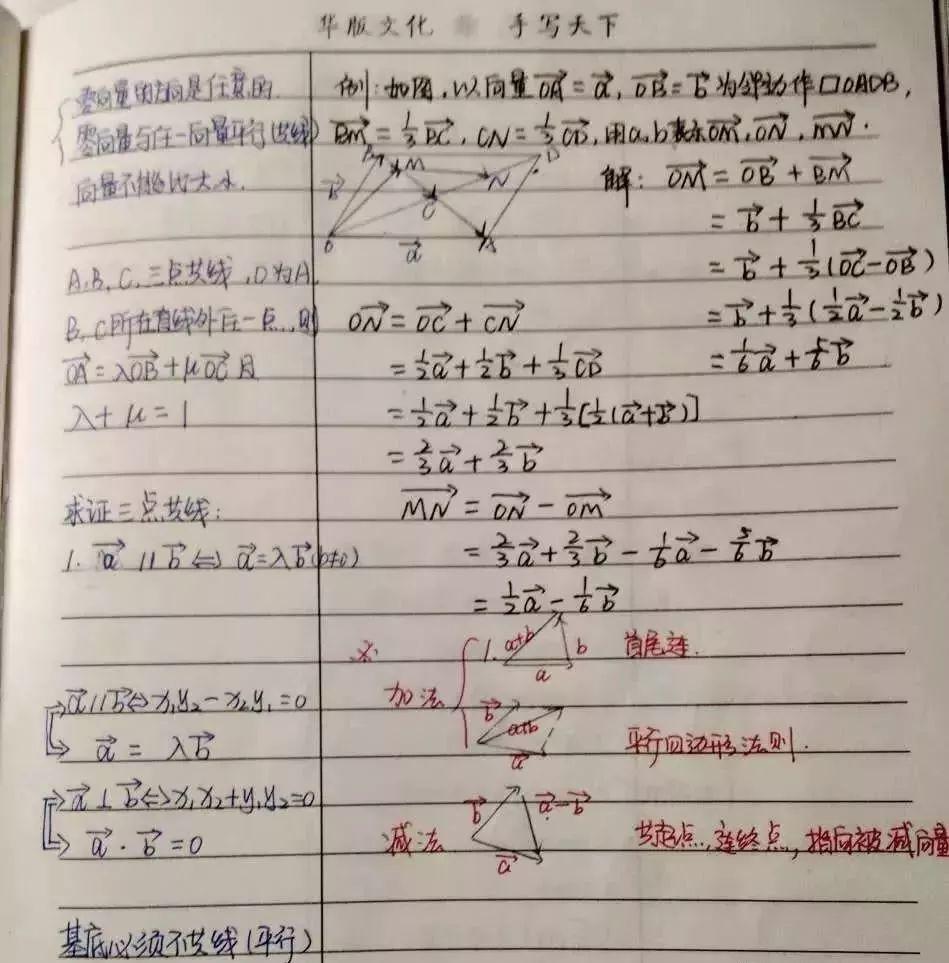 华版文化 手写天下
零向量的方向是任意的.
零向量与任一向量平行(共线)
向量不能比大小.
A,B,C,三点共线,O为A,
B,C所在直线外任一点,则
OA→=λOB→+μOC→且
λ+μ=1
求证三点共线:
1. a→ // b→ ⇔ a→=λb→(b≠0)
a→//b→⇔x₁y₂-x₂y₁=0
a→ = λb→
a→⊥b→⇔x₁x₂+y₁y₂=0
a→·b→=0
基底必须不共线(平行)
例:如图,以向量OA→=a→, OB→=b→为邻边作□OADB,
BM→=⅓BC→, CN→=⅓CD→,用a,b表示OM→,ON→,MN→.
B M D
b→ N
C
O a→ A
解: OM→=OB→+BM→
=b→+⅓BC→
=b→+⅓(OC→-OB→)
=b→+⅓(½a→-½b→)
=1/6a→+5/6b→
ON→=OC→+CN→
=½a→+½b→+⅓CD→
=½a→+½b→+⅓[½(a→+b→)]
=⅔a→+⅔b→
MN→=ON→-OM→
=⅔a→+⅔b→-1/6a→-5/6b→
=½a→-1/6b→
※
加法
1. a+b b 首尾连.
a
b→ a+b 平行四边形法则.
a→
减法 b→ a→-b→ 共起点,连终点,指向被减向量
a→